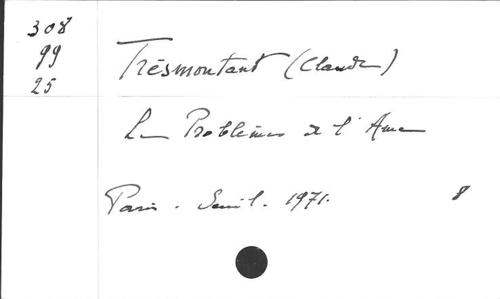 308
99
25
Trésmontant (Claude)
Le Problème de l'Ame
Paris. Seuil. 1971. 8